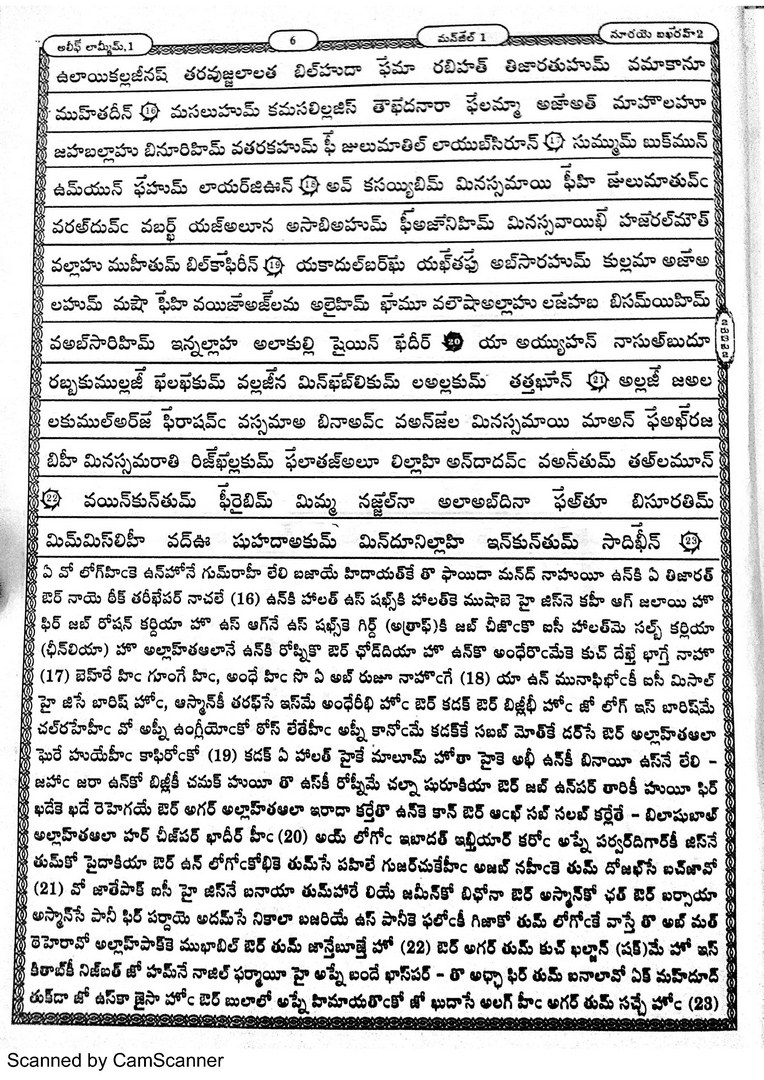 అలీఫ్ లామ్మీమ్,1 6 మన్‌జేల్ 1 సూరయె బఖేరహ్2
ఉలాయికల్లజీనష్ తరవుజ్జలాలత బిల్‌హుదా ఫేమా రబిహత్ తిజారతుహుమ్ వమాకానూ
ముహ్‌తదీన్ 16 మసలుహుమ్ కమసలిల్లజిస్ తౌఖేదనారా ఫేలమ్మా అజాఅత్ మాహౌలహూ
జహబల్లాహు బినూరిహిమ్ వతరకహుమ్ ఫీ జులుమాతిల్ లాయుబ్‌సిరూన్ 17 సుమ్ముమ్ బుక్‌మున్
ఉమ్‌యున్ ఫేహుమ్ లాయర్‌జిఊన్ 18 అవ్ కసయ్యిబిమ్ మినస్సమాయి ఫీహి జేలుమాతువ్ఁ
వరఅ్‌దువ్ఁ వబర్ఖ్ యజ్అలూన అసాబిఅహుమ్ ఫీఅజానిహిమ్ మినస్సవాయిఖీ హజేరల్‌మౌత్
వల్లాహు ముహీతుమ్ బిల్‌కాఫిరీన్ 19 యకాదుల్‌బర్‌ఘే యఖ్‌తఫు అబ్‌సారహుమ్ కుల్లమా అజాఅ
లహుమ్ మషౌ ఫేహి వయిజాఅజ్‌లమ అలైహిమ్ ఖామూ వలౌషాఅల్లాహు లజేహబ బిసమ్‌యిహిమ్
వఅబ్‌సారిహిమ్ ఇన్నల్లాహ అలాకుల్లి షైయిన్ ఖేదీర్ 20 యా అయ్యుహన్ నాసుఅ్‌బుదూ
రబ్బకుముల్లజీ ఖేలఖేకుమ్ వల్లజీన మిన్‌ఖేబ్‌లికుమ్ లఅల్లకుమ్ తత్తఖూన్ 21 అల్లజీ జఅల
లకుముల్అర్‌జే ఫిరాషవ్ఁ వస్సమాఅ బినాఅవ్ఁ వఅన్‌జేల మినస్సమాయి మాఅన్ ఫేఅఖ్‌రజ
బిహీ మినస్సమరాతి రిజ్‌ఖేల్లకుమ్ ఫేలాతజ్అలూ లిల్లాహి అన్‌దాదవ్ఁ వఅన్‌తుమ్ తఅ్‌లమూన్
22 వయిన్‌కున్‌తుమ్ ఫీరైబిమ్ మిమ్మ నజ్జేల్‌నా అలాఅబ్‌దినా ఫేఅ్‌తూ బిసూరతిమ్
మిమ్‌మిస్‌లిహీ వద్‌ఊ షుహదాఅకుమ్ మిన్‌దూనిల్లాహి ఇన్‌కున్‌తుమ్ సాదిఖీన్ 23
ఏ వో లోగ్‌హిఁకె ఉన్‌హోనే గుమ్‌రాహీ లేలి బజాయే హిదాయత్‌కే తొ ఫాయిదా మన్ద్ నాహుయీ ఉన్‌కి ఏ తిజారత్
ఔర్ నాయె ఠీక్ తరీఖేపర్ నాచలే (16) ఉన్‌కి హాలత్ ఉస్ షఖ్స్‌కి హాలత్‌కె ముషాబె హై జిస్‌నె కహీ ఆగ్ జలాయి హొ
ఫిర్ జబ్ రోషన్ కర్దియా హొ ఉస్ ఆగ్‌నే ఉస్ షఖ్స్‌కె గిర్ద్ (అత్రాఫ్)కి జబ్ చీజొఁకొ ఐసీ హాలత్‌మె సల్బ్ కర్లియా
(ఛీన్‌లియా) హొ అల్లాహ్‌తఆలానే ఉన్‌కి రోష్నికొ ఔర్ ఛోడ్‌దియా హొ ఉన్‌కొ అంధేరొఁమేకె కుచ్ దేఖ్తే భాగ్తే నాహొ
(17) బెహ్‌రే హిఁ గూంగే హిఁ, అంధే హిఁ సొ ఏ అబ్ రుజూ నాహొఁగే (18) యా ఉన్ మునాఫిఖొఁకీ ఐసీ మిసాల్
హై జిసే బారిష్ హోఁ, ఆస్మాన్‌కీ తరఫ్‌సే ఇస్‌మే అంధేరీభి హోఁ ఔర్ కడక్ ఔర్ బిజ్లీభీ హోఁ జో లోగ్ ఇస్ బారిష్‌మే
చల్‌రహేహీఁ వో అప్నీ ఉంగ్లీయోఁకో ఠోస్ లేతేహీఁ అప్నీ కానోఁమే కడక్‌కే సబబ్ మోత్‌కే దర్‌సే ఔర్ అల్లాహ్‌తఆలా
ఘెరే హుయేహీఁ కాఫిరోఁకో (19) కడక్ ఏ హాలత్ హైకే మాలూమ్ హోతా హైకె అభీ ఉన్‌కీ బినాయీ ఉస్‌నే లేలి -
జహాఁ జరా ఉన్‌కో బిజ్లీకీ చమక్ హుయీ తొ ఉస్‌కీ రోష్నీమే చల్నా షురూకియా ఔర్ జబ్ ఉన్‌పర్ తారికీ హుయీ ఫిర్
ఖడేకె ఖడే రెహెగయే ఔర్ అగర్ అల్లాహ్‌తఆలా ఇరాదా కర్తేతొ ఉన్‌కె కాన్ ఔర్ ఆంఖ్ సబ్ సలబ్ కర్లేతే - బిలాషుబాఅ్
అల్లాహ్‌తఆలా హర్ చీజ్‌పర్ ఖాదీర్ హీఁ (20) అయ్ లోగోఁ ఇబాదత్ ఇఖ్తియార్ కరోఁ అప్నే పర్వర్‌దిగార్‌కీ జిస్‌నే
తుమ్‌కో పైదాకియా ఔర్ ఉన్ లోగోఁకోభికె తుమ్‌సే పహిలే గుజర్‌చుకేహీఁ అజబ్ నహీఁకె తుమ్ దోజఖ్‌సే బచ్‌జావో
(21) వో జాతేపాక్ ఐసీ హై జిస్‌నే బనాయా తుమ్‌హారే లియే జమీన్‌కో బిఛోనా ఔర్ అస్మాన్‌కో ఛత్ ఔర్ బర్సాయా
అస్మాన్‌సే పానీ ఫిర్ పర్దాయె అదమ్‌సే నికాలా బజరియే ఉస్ పానీకె ఫలోఁకీ గిజాకో తుమ్ లోగోఁకే వాస్తే తొ అబ్ మత్
ఠెహెరావో అల్లాహ్‌పాక్‌కె ముఖాబిల్ ఔర్ తుమ్ జాన్తేబూజ్తే హో (22) ఔర్ అగర్ తుమ్ కుచ్ ఖల్జాన్ (షక్)మే హో ఇస్
కితాబ్‌కీ నిజ్‌బత్ జో హమ్‌నే నాజిల్ ఫర్మాయీ హై అప్నే బందే ఖాస్‌పర్ - తొ అఛ్ఛా ఫిర్ తుమ్ బనాలావో ఏక్ మహ్‌దూద్
తుక్‌డా జో ఉస్‌కా జైసా హోఁ ఔర్ బులాలో అప్నే హిమాయతొఁకో జో ఖుదాసే అలగ్ హీఁ అగర్ తుమ్ సచ్చే హోఁ (23)
Scanned by CamScanner